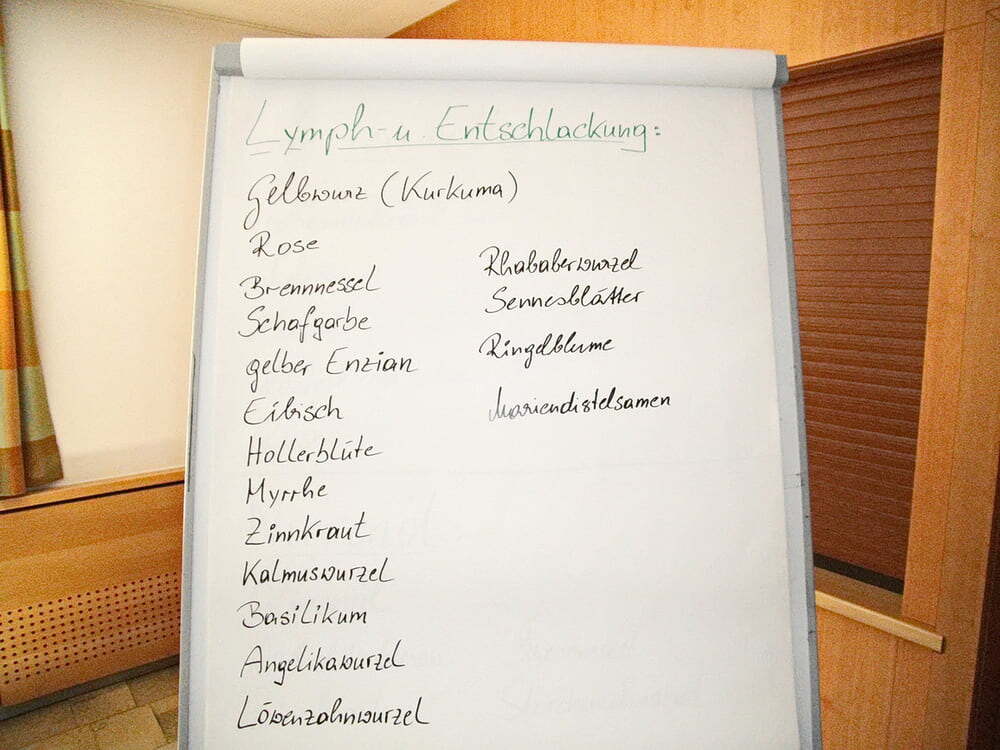 Lymph- u. Entschlackung:
Gelbwurz (Kurkuma)
Rose
Brennnessel
Schafgarbe
gelber Enzian
Eibisch
Hollerblüte
Myrrhe
Zinnkraut
Kalmuswurzel
Basilikum
Angelikawurzel
Löwenzahnwurzel
Rhababerwurzel
Sennesblätter
Ringelblume
Mariendistelsamen